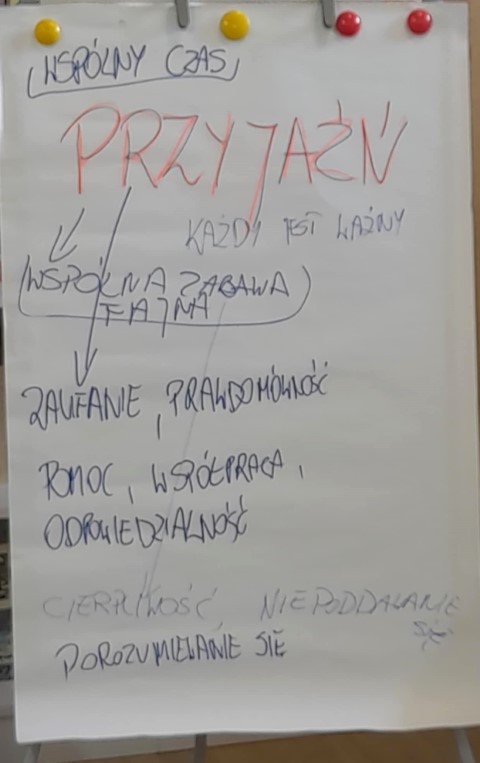 WSPÓLNY CZAS
PRZYJAŹŃ
KAŻDY JEST WAŻNY
WSPÓLNA ZABAWA
FAJNA
ZAUFANIE, PRAWDOMÓWNOŚĆ
POMOC, WSPÓŁPRACA,
ODPOWIEDZIALNOŚĆ
CIERPLIWOŚĆ, NIEPODDAWANIE
SIĘ
POROZUMIEWANIE SIĘ